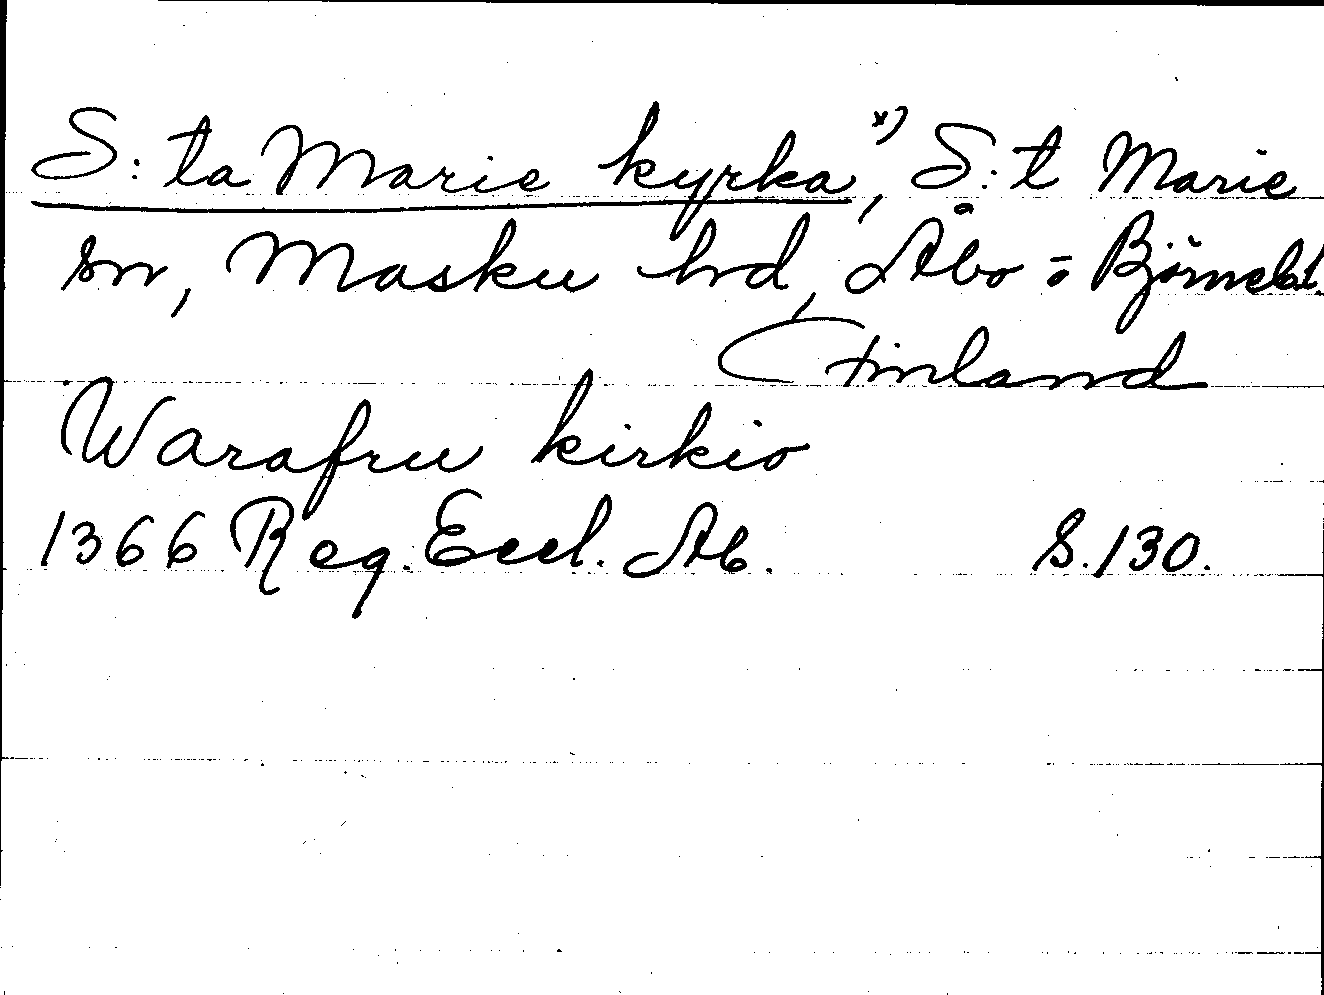 S:ta Marie kyrka x), S:t Marie
sn, Masku hd, Åbo-Björneb.l.
Finland
Warafru kirkio
1366 Reg. Eccl. Ab. S. 130.